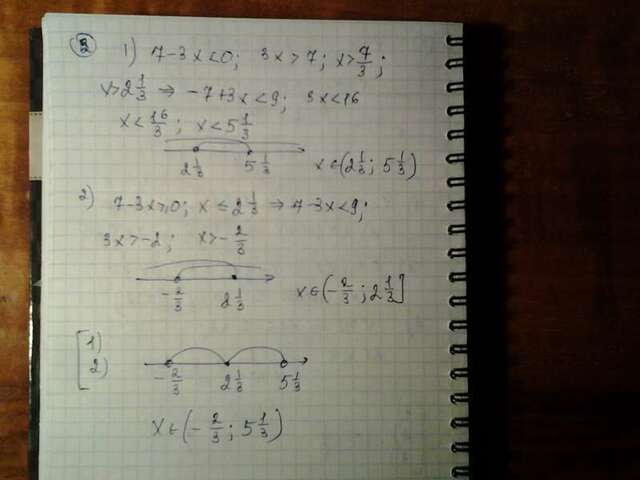 2
1) 7-3x<0; 3x>7; x>7/3;
x>2 1/3 ⇒ -7+3x<9; 3x<16
x<16/3; x<5 1/3
2 1/3 5 1/3 x∈(2 1/3; 5 1/3)
2) 7-3x≥0; x≤2 1/3 ⇒ 7-3x<9;
3x>-2; x>-2/3
-2/3 2 1/3 x∈(-2/3; 2 1/3]
[1)
2) -2/3 2 1/3 5 1/3
x∈(-2/3; 5 1/3)